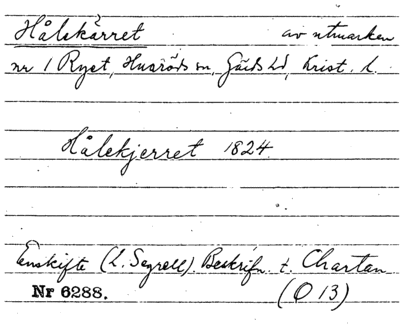 Hålskärret av utmarken
nr 1 Ryet, Huaröds sn, Gärds hd, Krist. l.
Hålekjerret 1824
Enskifte (L. Segrell). Beskrifn. t. Chartan
Nr 6288. (O 13)